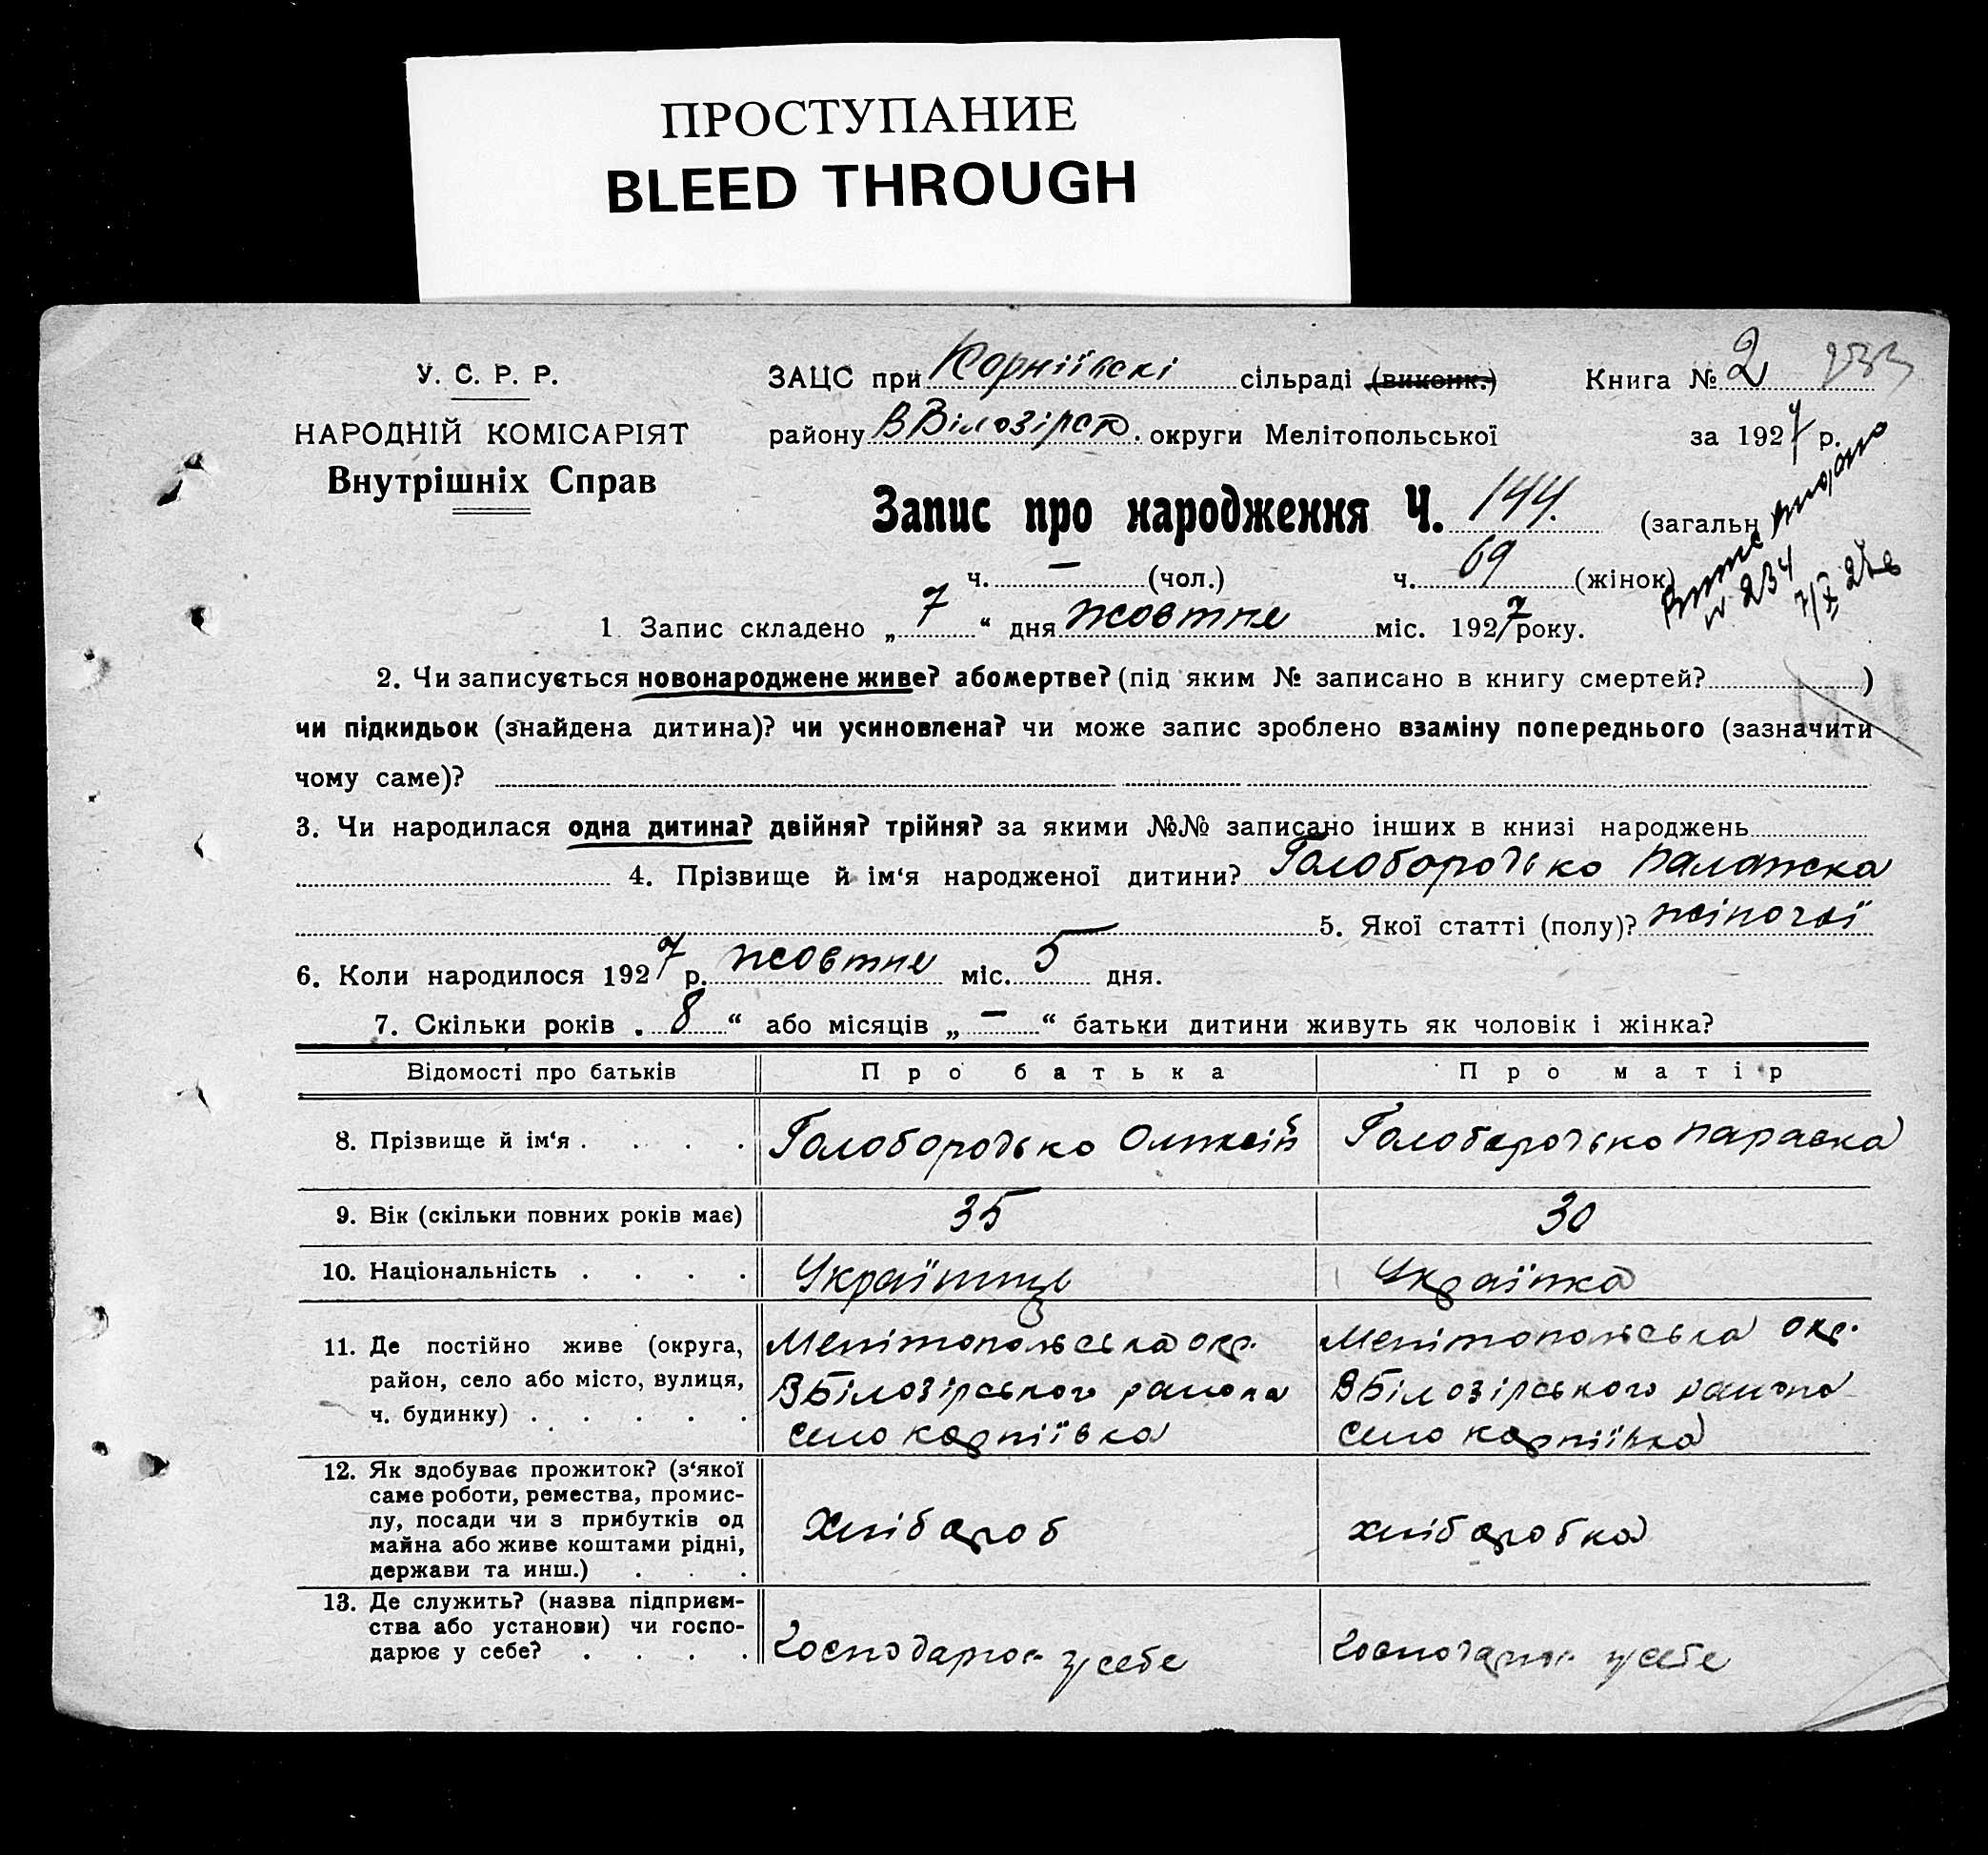 ПРОСТУПАНИЕ
BLEED THROUGH
У. С. Р. Р.
НАРОДНІЙ КОМІСАРІЯТ
Внутрішніх Справ
ЗАЦС при Корніївскі сільраді (виконк.) Книга № 2 233
району ВБілозірськ. округи Мелітопольської за 1927 р.
Запис про народження Ч. 144. (загальн
ч. — (чол.) ч. 69 (жінок)
Витяг видано
№ 234
7/X 27 в
1 Запис складено „ 7 “ дня жовтня міс. 1927 року.
2. Чи записується новонароджене живе? або мертве? (під яким № записано в книгу смертей? )
чи підкидьок (знайдена дитина)? чи усиновлена? чи може запис зроблено взаміну попереднього (зазначити
чому саме)?
3. Чи народилася одна дитина? двійня? трійня? за якими №№ записано інших в книзі народжень
4. Прізвище й ім‘я народженої дитини? Голобородько Палажка
5. Якої статті (полу)? жіночої
6. Коли народилося 1927 р. жовтня міс. 5 дня.
7. Скільки років „ 8 “ або місяців „ — “ батьки дитини живуть як чоловік і жінка?
Відомості про батьків Про батька Про матір
8. Прізвище й ім‘я . . . . Голобородько Олексій Голобородько Параска
9. Вік (скільки повних років має) 35 30
10. Національність . . . . Українець Українка
11. Де постійно живе (округа, Мелітопольська окр. Мелітопольська окр.
район, село або місто, вулиця, ВБілозірського района ВБілозірського района
ч. будинку) . . . . . село корніївка село корніївка
12. Як здобуває прожиток? (з‘якої
саме роботи, ремества, промис-
лу, посади чи з прибутків од Хлібороб хліборобка
майна або живе коштами рідні,
держави та инш.) . . .
13. Де служить? (назва підприєм-
ства або установи) чи госпо-
дарює у себе? . . . . Господарює у себе Господарює у себе